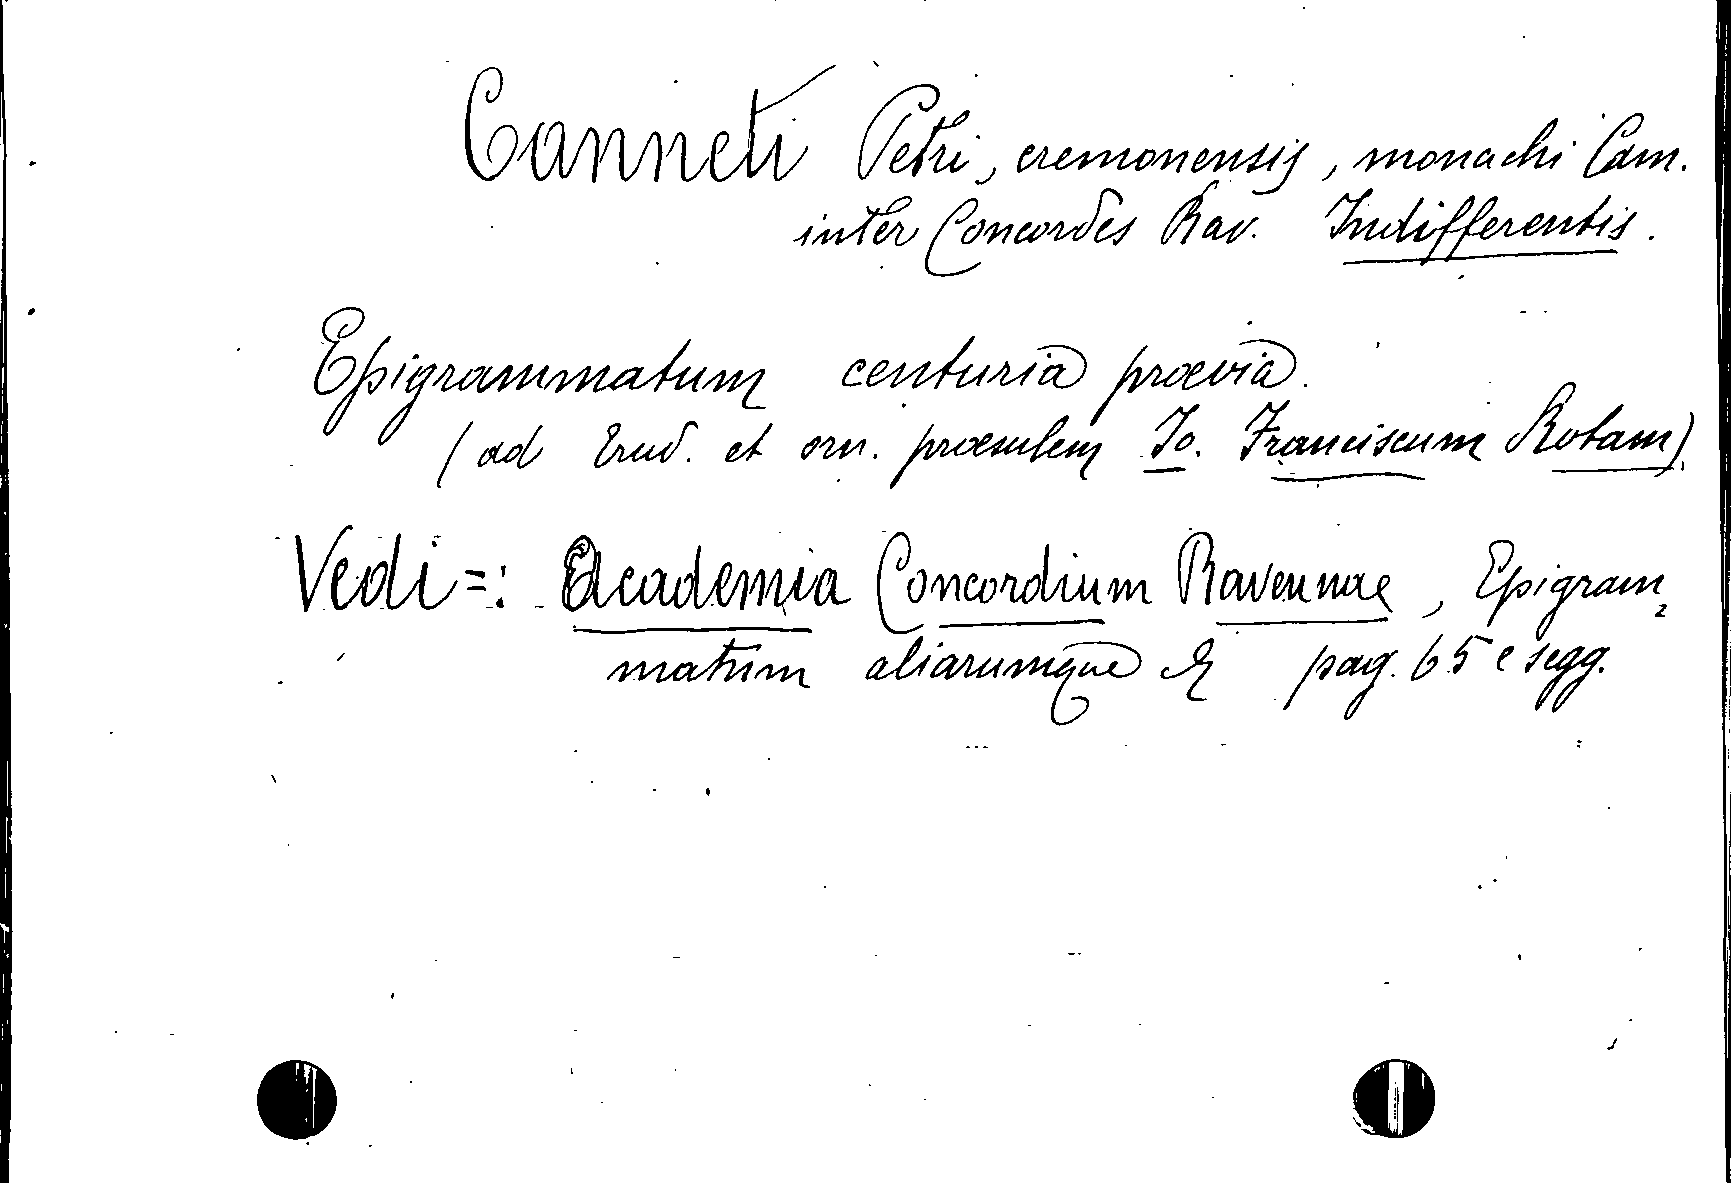 Canneti Petri, cremonensis, monachi Cam.
inter Concordes Rav. Indifferentis.
Epigrammatum centuria prævia.
(ad Erud. et orn. præsulem Io. Franciscum Rotam)
Vedi =: Academia Concordium Ravennae, Epigram
matum aliarumque & pag. 65 e segg.